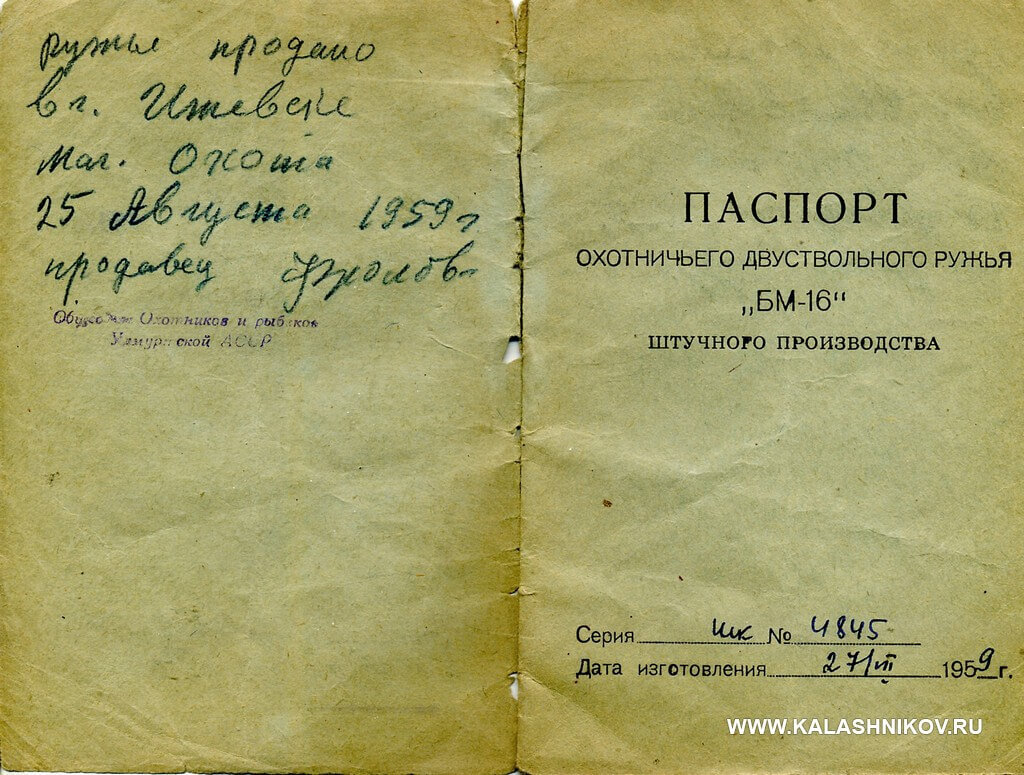 ружье продано
в г. Ижевске
маг. Охота
25 Августа 1959 г
продавец Фролов
Охотников и рыбаков
Удмуртской АССР
ПАСПОРТ
ОХОТНИЧЬЕГО ДВУСТВОЛЬНОГО РУЖЬЯ
„БМ-16“
ШТУЧНОГО ПРОИЗВОДСТВА
Серия шк № 4845
Дата изготовления 27/III 1959 г.
WWW.KALASHNIKOV.RU